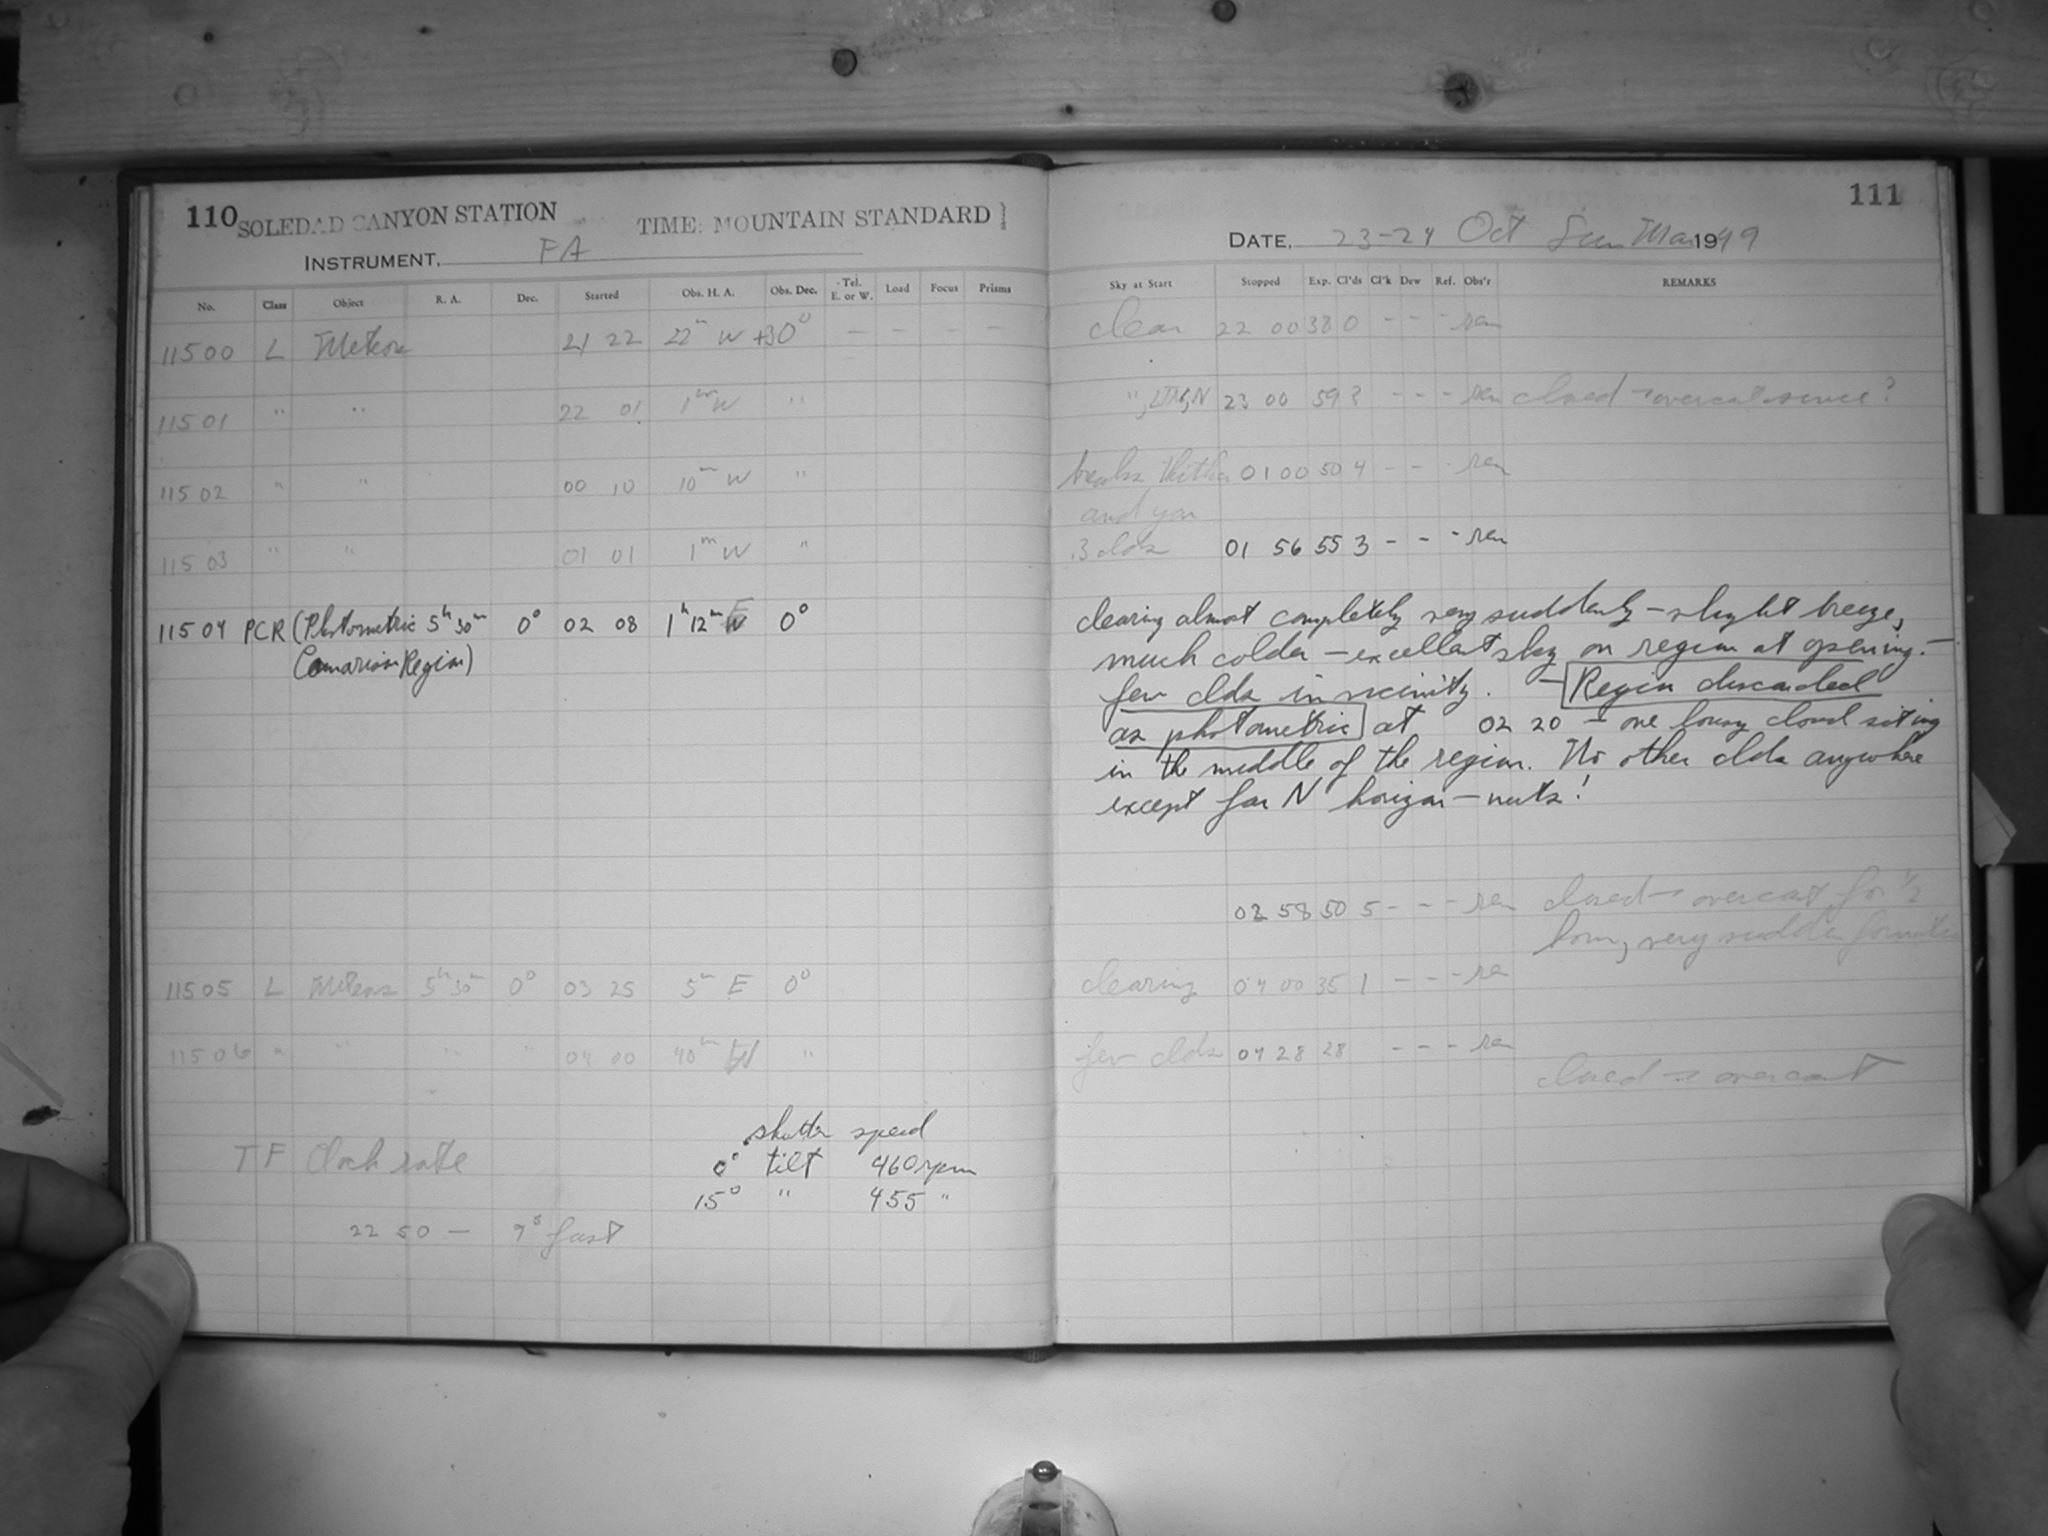 110 SOLEDAD CANYON STATION TIME: MOUNTAIN STANDARD
INSTRUMENT, FA
No. Class Object R. A. Dec. Started Obs. H. A. Obs. Dec. Tel. E. or W. Load Focus Prisms
11500 L Meteors 21 22 22m W +30° – – – –
11501 " " 22 01 1m W "
11502 " " 00 10 10m W "
11503 " " 01 01 1m W "
11504 PCR (Photometric 5h 30m 0° 02 08 1h 12m E 0°
Comparison Region)
11505 L Meteors 5h 30m 0° 03 25 5m E 0°
11506 " " " " 04 00 40m W "
shutter speed
TF Clock rate 0° tilt 460 rpm
15° " 455 "
22 50 — 9s fast
111
DATE, 23-24 Oct Sun Mon 1949
Sky at Start Stopped Exp. Cl'ds Cl'k Dew Ref. Obs'r REMARKS
clear 22 00 38 0 - - - ren
" N 23 00 59 3 - - - ren closed → overcast
breaks thither 01 00 50 4 - - - ren
and yon
.3 clds 01 56 55 3 - - - ren
clearing almost completely very suddenly – slight breeze,
much colder – excellent sky on region at opening. –
few clds in vicinity. – Region discarded
as photometric at 02 20 – one lousy cloud sitting
in the middle of the region. No other clds anywhere
except far N horizon – nuts!
02 58 50 5 - - - ren closed → overcast for 1/2
hour, very sudden formation
clearing 04 00 35 1 - - - ren
few clds 04 28 28 - - - ren
closed → overcast